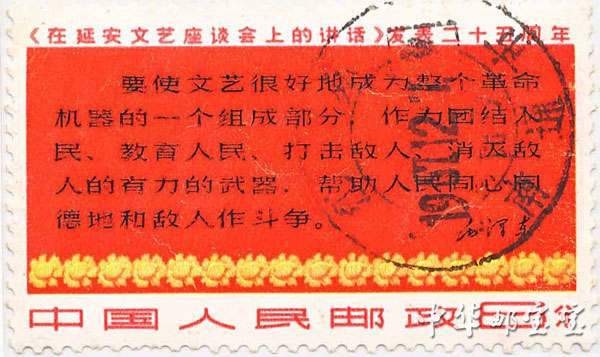 《在延安文艺座谈会上的讲话》发表二十五周年
要使文艺很好地成为整个革命
机器的一个组成部分,作为团结人
民、教育人民、打击敌人、消灭敌
人的有力的武器,帮助人民同心同
德地和敌人作斗争。
毛泽东
1967.12
南通
中国人民邮政8分
中华邮